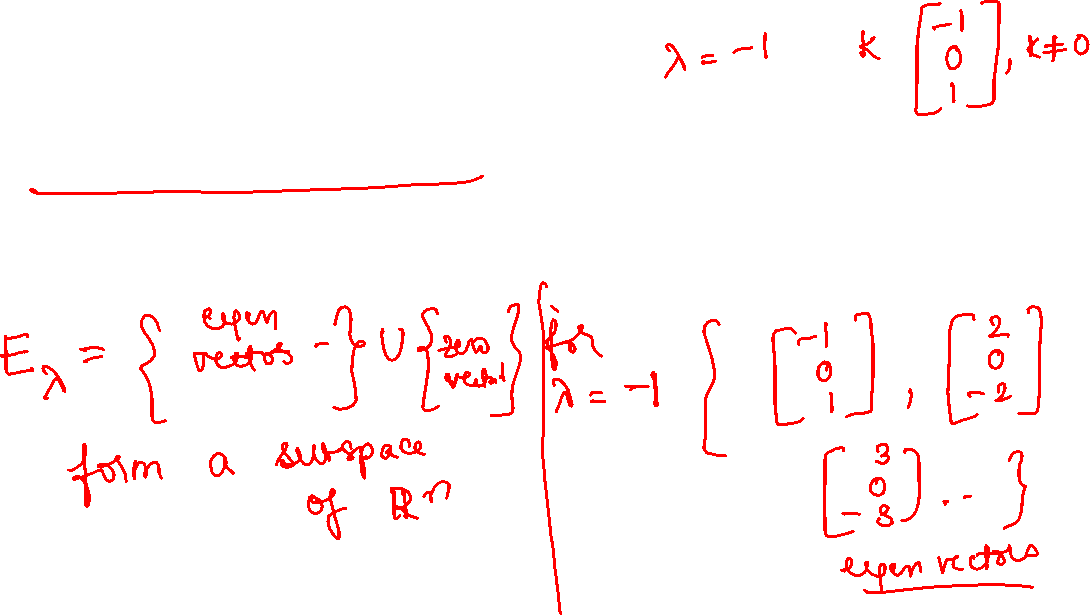 λ = -1 k [-1 0 1], k ≠ 0
E_λ = { eigen vectors - } ∪ { zero vector }
form a subspace
of ℝⁿ
for λ = -1 { [-1 0 1], [2 0 -2]
[3 0 -3] .. }
eigen vectors